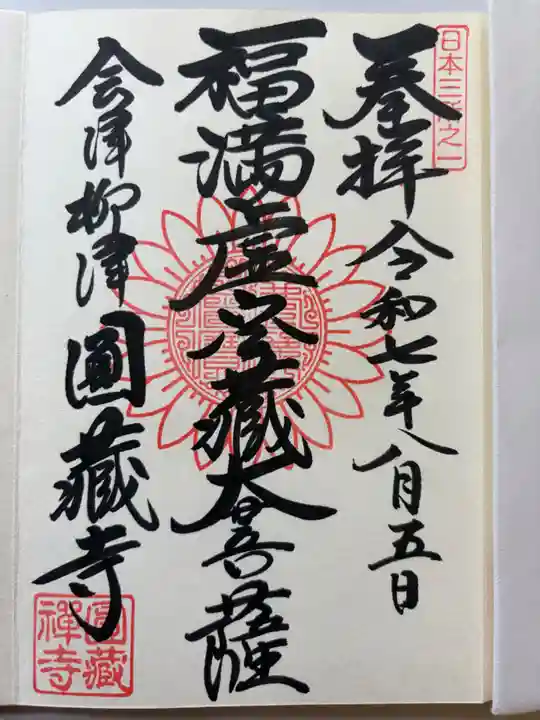 日本三所之一
奉拝 令和七年八月五日
福満虚空藏大菩薩
会津柳津 圓藏寺
圓藏
禪寺